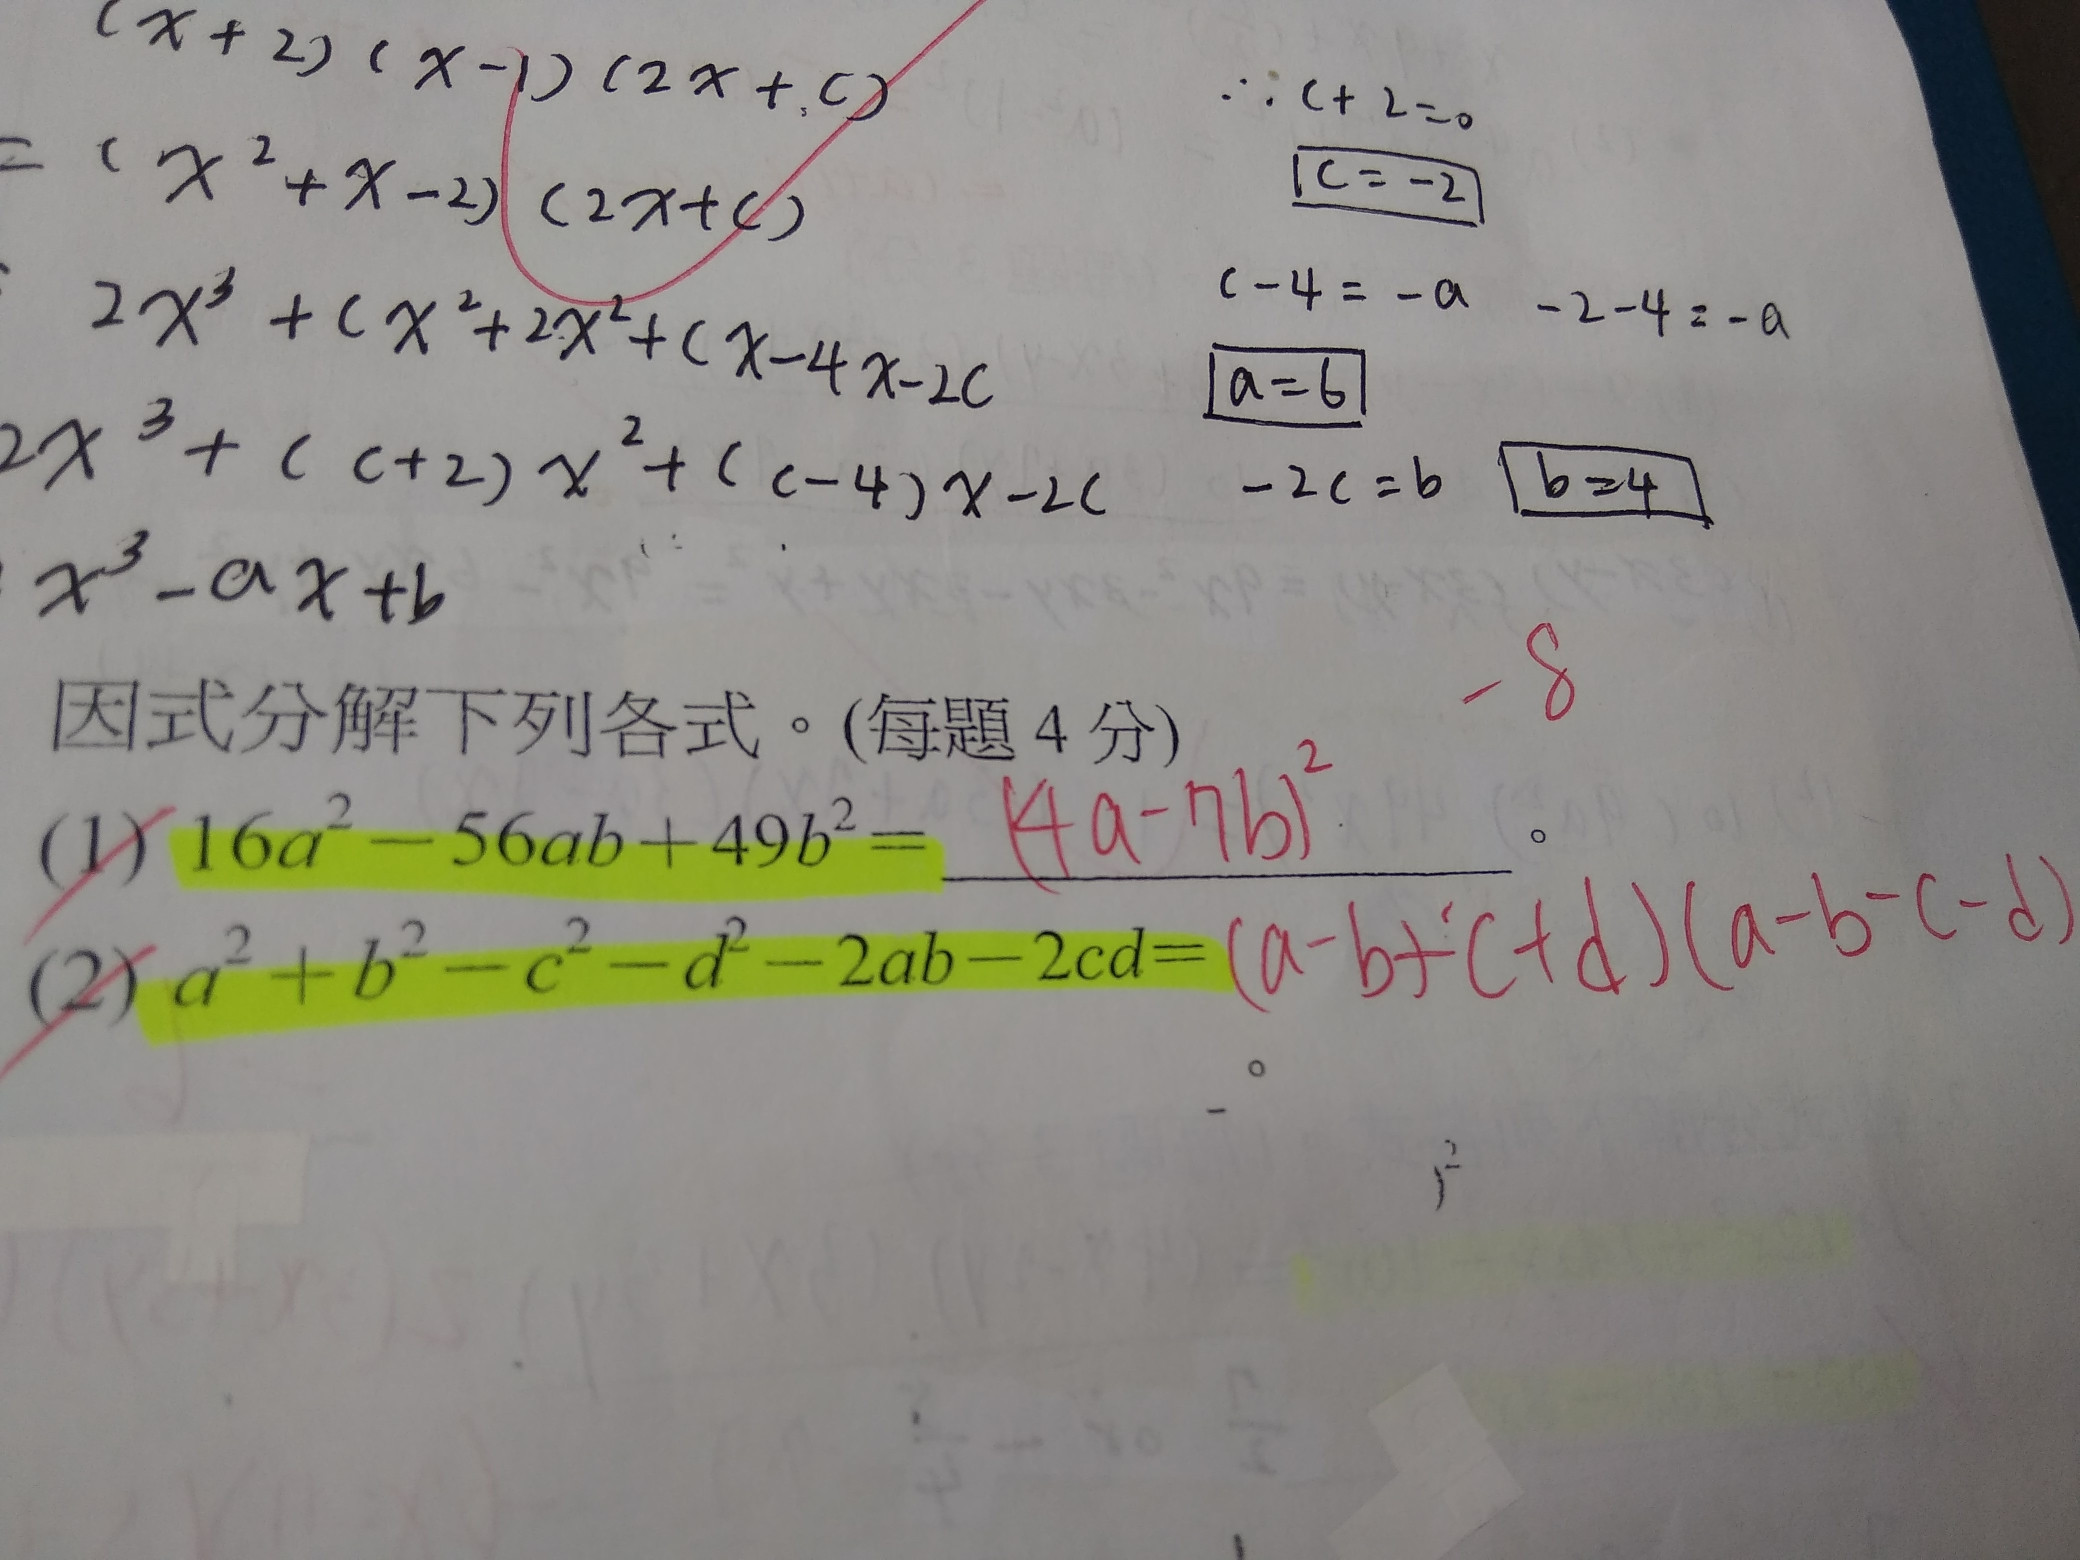 (x+2)(x-1)(2x+c)
= (x²+x-2)(2x+c)
2x³+cx²+2x²+cx-4x-2c
2x³+(c+2)x²+(c-4)x-2c
x³-ax+b
∴ c+2=0
c=-2
c-4=-a -2-4=-a
a=6
-2c=b b=4
-8
因式分解下列各式。(每題4分)
(1) 16a²-56ab+49b²= (4a-7b)² 。
(2) a²+b²-c²-d²-2ab-2cd=(a-b+c+d)(a-b-c-d)
。
)²